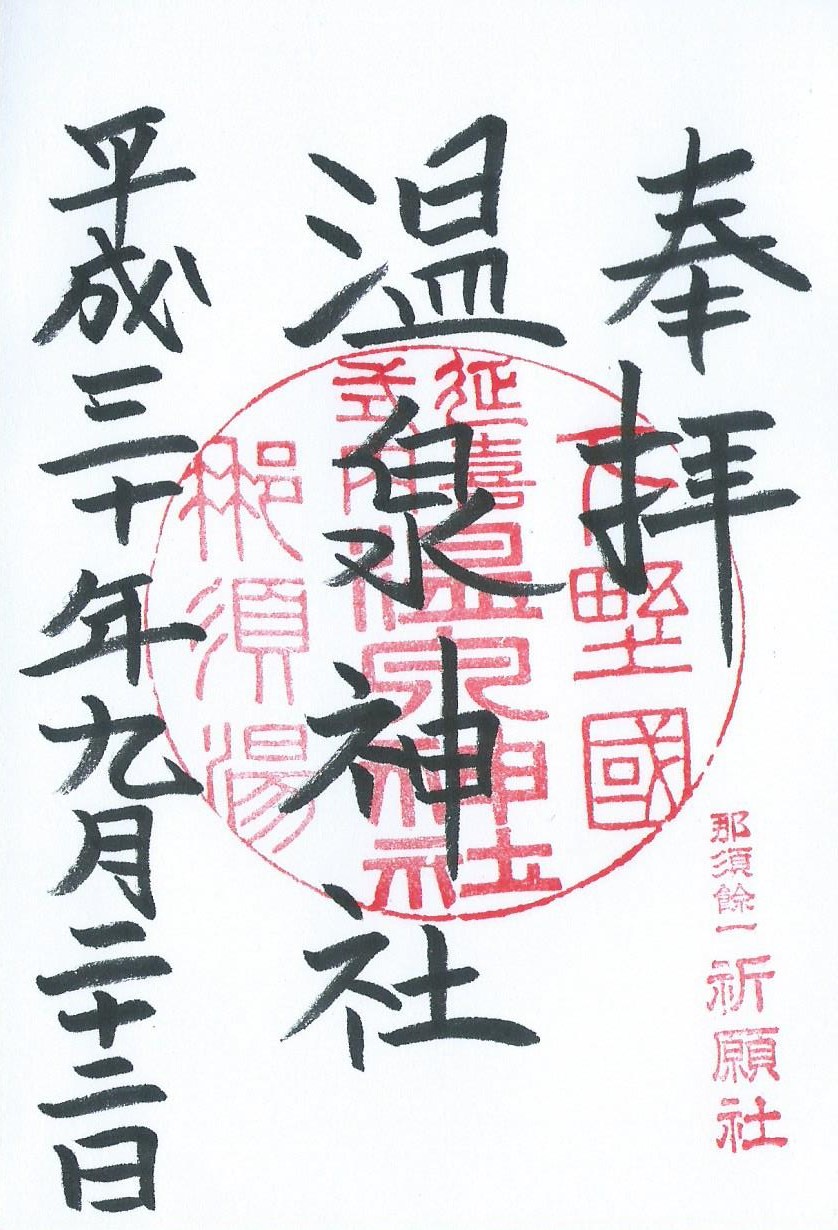 奉拝
下野國
延喜
式内
温泉神社
那須湯
那須餘一祈願社
温泉神社
平成三十年九月二十二日